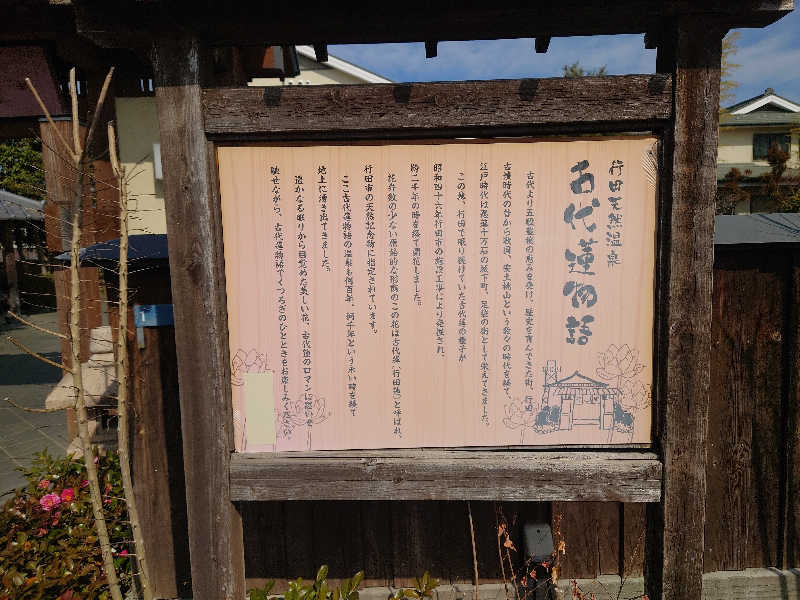 行田天然温泉
古代蓮物語
古代より五穀豊穣の恵みを受け、歴史を育んできた街、行田
古墳時代の昔から戦国、安土桃山という数々の時代を経て、
江戸時代は忍藩十万石の城下町、足袋の街として栄えてきました。
この地、行田で眠り続けていた古代蓮の種子が
昭和四十六年行田市の施設工事により発掘され、
約二千年の時を経て開花しました。
花弁数の少ない原始的な形態のこの花は古代蓮（行田蓮）と呼ばれ、
行田市の天然記念物に指定されています。
ここ古代蓮物語の温泉も何百年、何千年という永い時を経て
地上に湧き出てきました。
遥かなる眠りから目覚めた美しい花、古代蓮のロマンに想いを
馳せながら、古代蓮物語でくつろぎのひとときをお楽しみください。